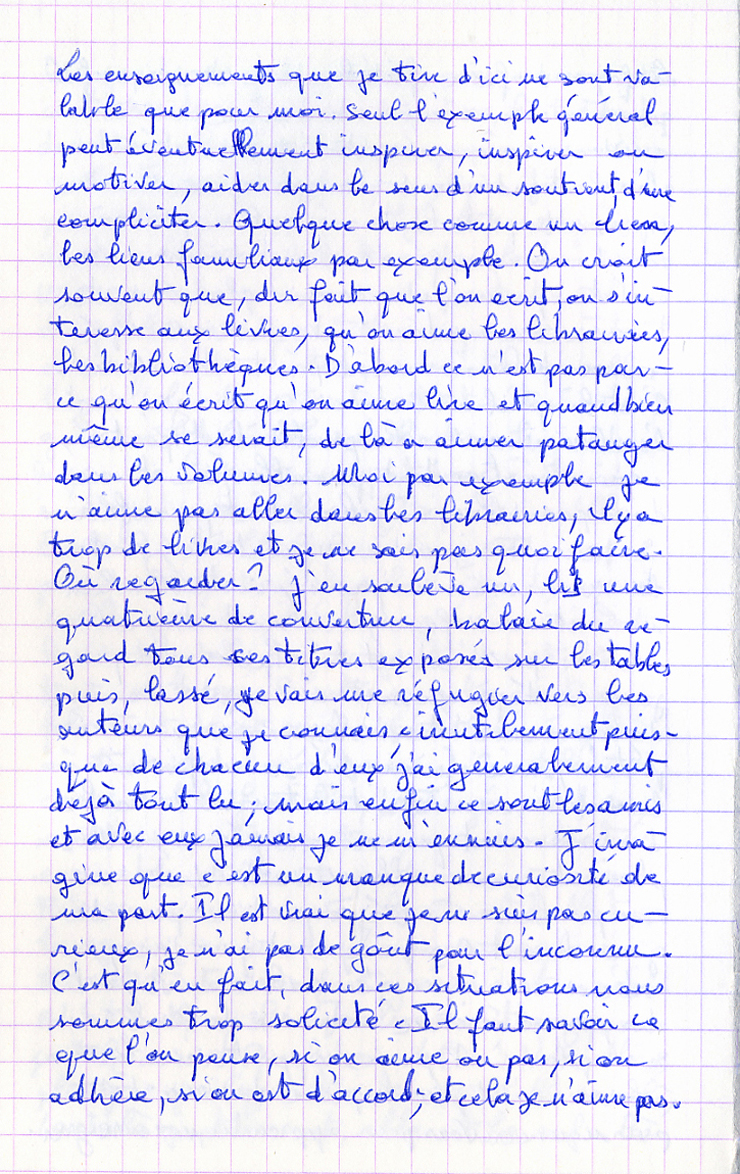 Les enseignements que je tire d'ici ne sont va-
lable que pour moi. Seul l'exemple général
peut éventuellement inspirer, inspirer ou
motiver, aider dans le sens d'un soutient, d'une
compliciter. Quelque chose comme un lien,
les liens familiaux par exemple. On croit
souvent que, du fait que l'on ecrit, on s'in-
teresse aux livres, qu'on aime les librairies,
les bibliothèques. D'abord ce n'est pas par-
ce qu'on écrit qu'on aime lire et quand bien
même se serait, de là a aimer patauger
dans les volumes. Moi par exemple je
n'aime pas aller dans les librairies, il y a
trop de livres et je ne sais pas quoi faire.
Où regarder? J'en soulève un, lis une
quatrième de couverture, balaie du re-
gard tous ces titres exposés sur les tables
puis, lassé, je vais me réfugier vers les
auteurs que je connais inutilement puis-
que de chacun d'eux j'ai generalement
dejà tout lu; mais enfin ce sont les amis
et avec eux jamais je ne m'ennuies. J'ima-
gine que c'est un manque de curiosité de
ma part. Il est vrai que je ne suis pas cu-
rieux, je n'ai pas de goût pour l'inconnu.
C'est qu'en fait, dans ces situations nous
sommes trop solicité. Il faut savoir ce
que l'on pense, si on aime ou pas, si on
adhère, si on est d'accord, et cela je n'aime pas.